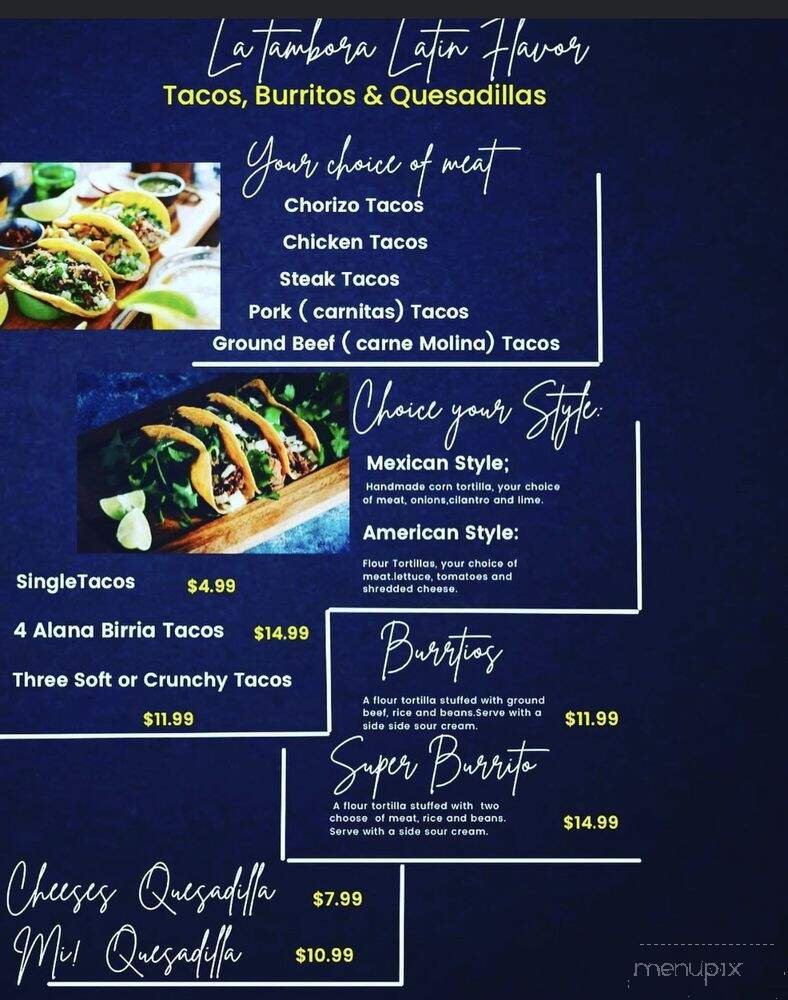 La Tambora Latin Flavor
Tacos, Burritos & Quesadillas
Your choice of meat
Chorizo Tacos
Chicken Tacos
Steak Tacos
Pork ( carnitas) Tacos
Ground Beef ( carne Molina) Tacos
Choice your Style:
Mexican Style;
Handmade corn tortilla, your choice
of meat, onions,cilantro and lime.
American Style:
Flour Tortillas, your choice of
meat.lettuce, tomatoes and
shredded cheese.
SingleTacos $4.99
4 Alana Birria Tacos $14.99
Three Soft or Crunchy Tacos
$11.99
Burrtios
A flour tortilla stuffed with ground
beef, rice and beans.Serve with a
side side sour cream.
$11.99
Super Burrito
A flour tortilla stuffed with two
choose of meat, rice and beans.
Serve with a side sour cream.
$14.99
Cheeses Quesadilla $7.99
Mi! Quesadilla $10.99
menupix